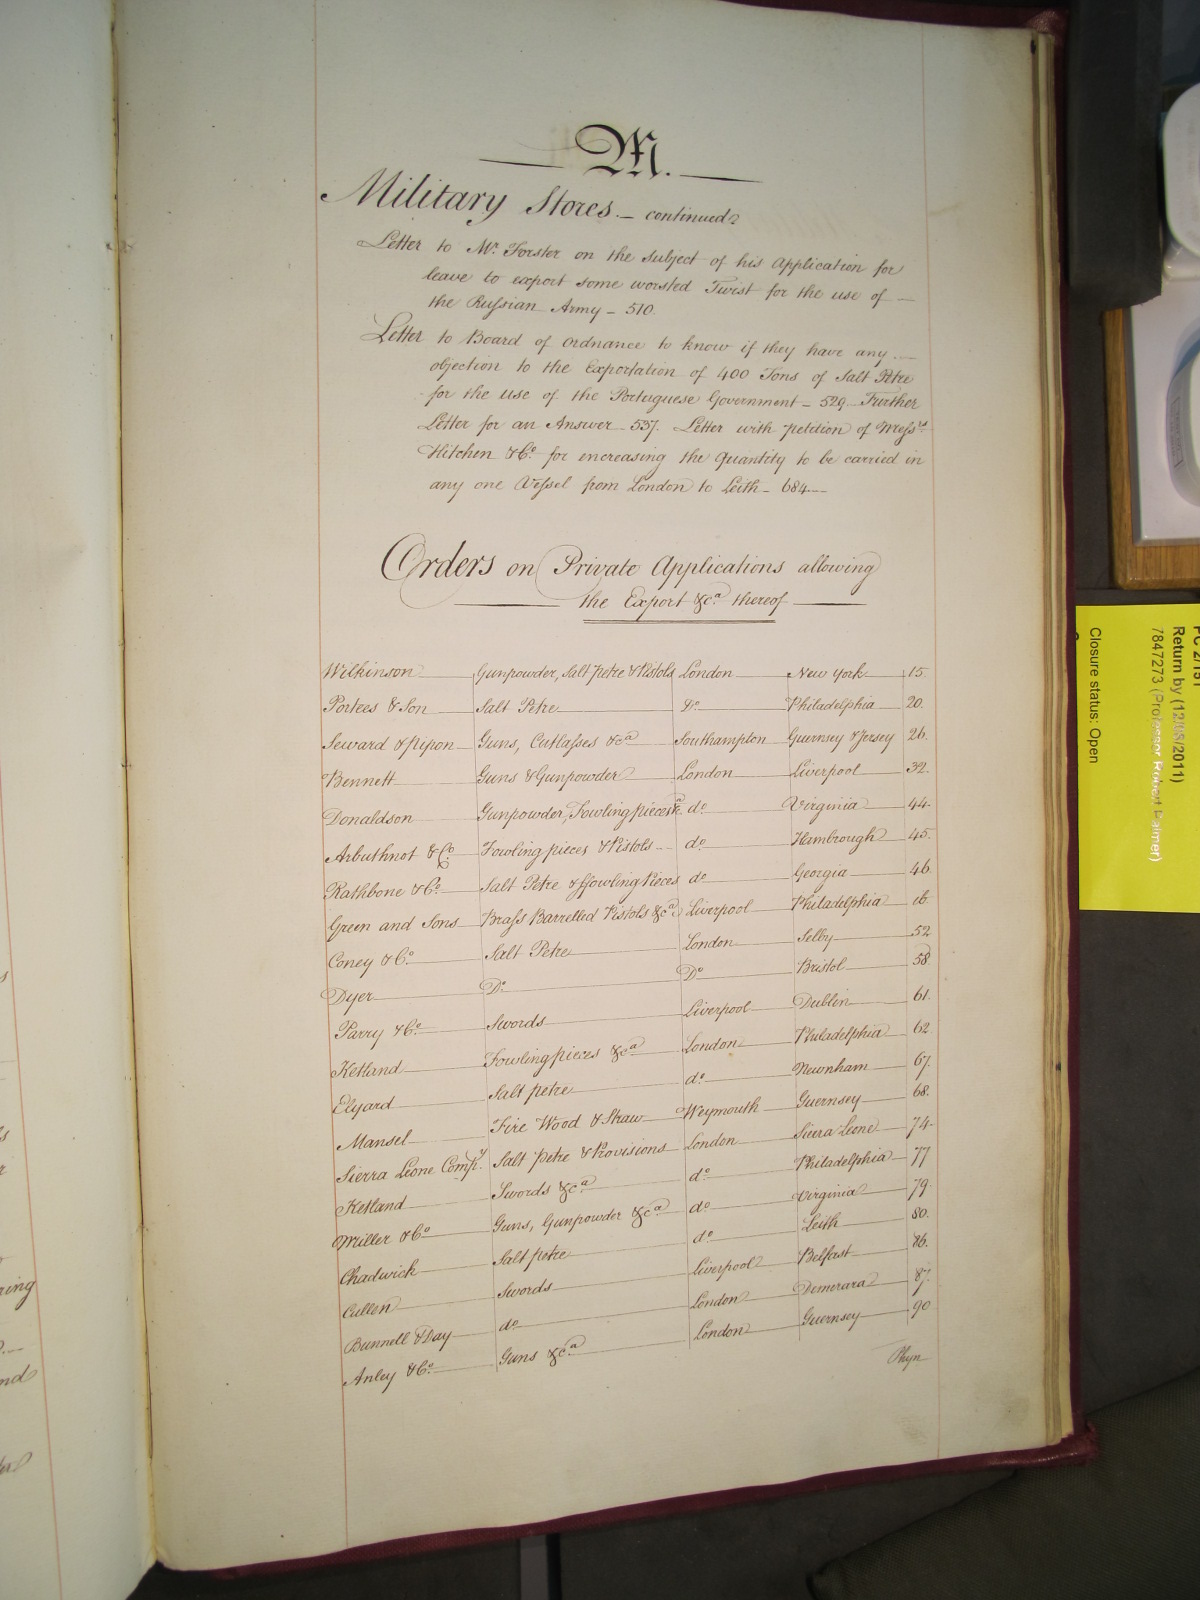 M.
Military Stores. — continued
Letter to Mr. Forster on the subject of his Application for
leave to export some worsted Twist for the use of —
the Russian Army — 510.
Letter to Board of Ordnance to know if they have any —
objection to the Exportation of 400 Tons of Salt Petre
for the use of the Portuguese Government — 529. Further
Letter for an Answer — 537. Letter with petition of Messrs.
Hitchen & Co. for encreasing the Quantity to be carried in
any one Vessel from London to Leith — 684 —
Orders on Private Applications allowing
the Export &ca. thereof
Wilkinson Gunpowder, Salt petre & Pistols London New York 15
Portees & Son Salt Petre Do. Philadelphia 20.
Seward & Pipon Guns, Cutlasses &ca Southampton Guernsey & Jersey 26.
Bennett Guns & Gunpowder London Liverpool 32.
Donaldson Gunpowder, Fowling pieces &ca do. Virginia 44.
Arbuthnot & Co. Fowling pieces & Pistols do. Hambrough 45.
Rathbone & Co. Salt Petre & ffowling Pieces do. Georgia 46.
Green and Sons Brass Barrelled Pistols &ca Liverpool Philadelphia ib.
Coney & Co. Salt Petre London Selby 52
Dyer Do. Do. Bristol 58.
Parry & Co. Swords Liverpool Dublin 61.
Ketland Fowling pieces &ca London Philadelphia 62
Elyard Salt petre do. Newnham 67.
Mansel Fire Wood & Straw Weymouth Guernsey 68.
Sierra Leone Compy. Salt petre & Provisions London Sierra Leone 74.
Ketland Swords &ca do. Philadelphia 77
Miller & Co. Guns, Gunpowder &ca do. Virginia 79.
Chadwick Salt petre do. Leith 80.
Cullen Swords Liverpool Belfast 86.
Bunnell & Day do. London Demerara 87.
Anley & Co. Guns &ca London Guernsey 90
Phyn
Return by (12/08/2011)
7847273 (Professor Robert Palmer)
Closure status: Open